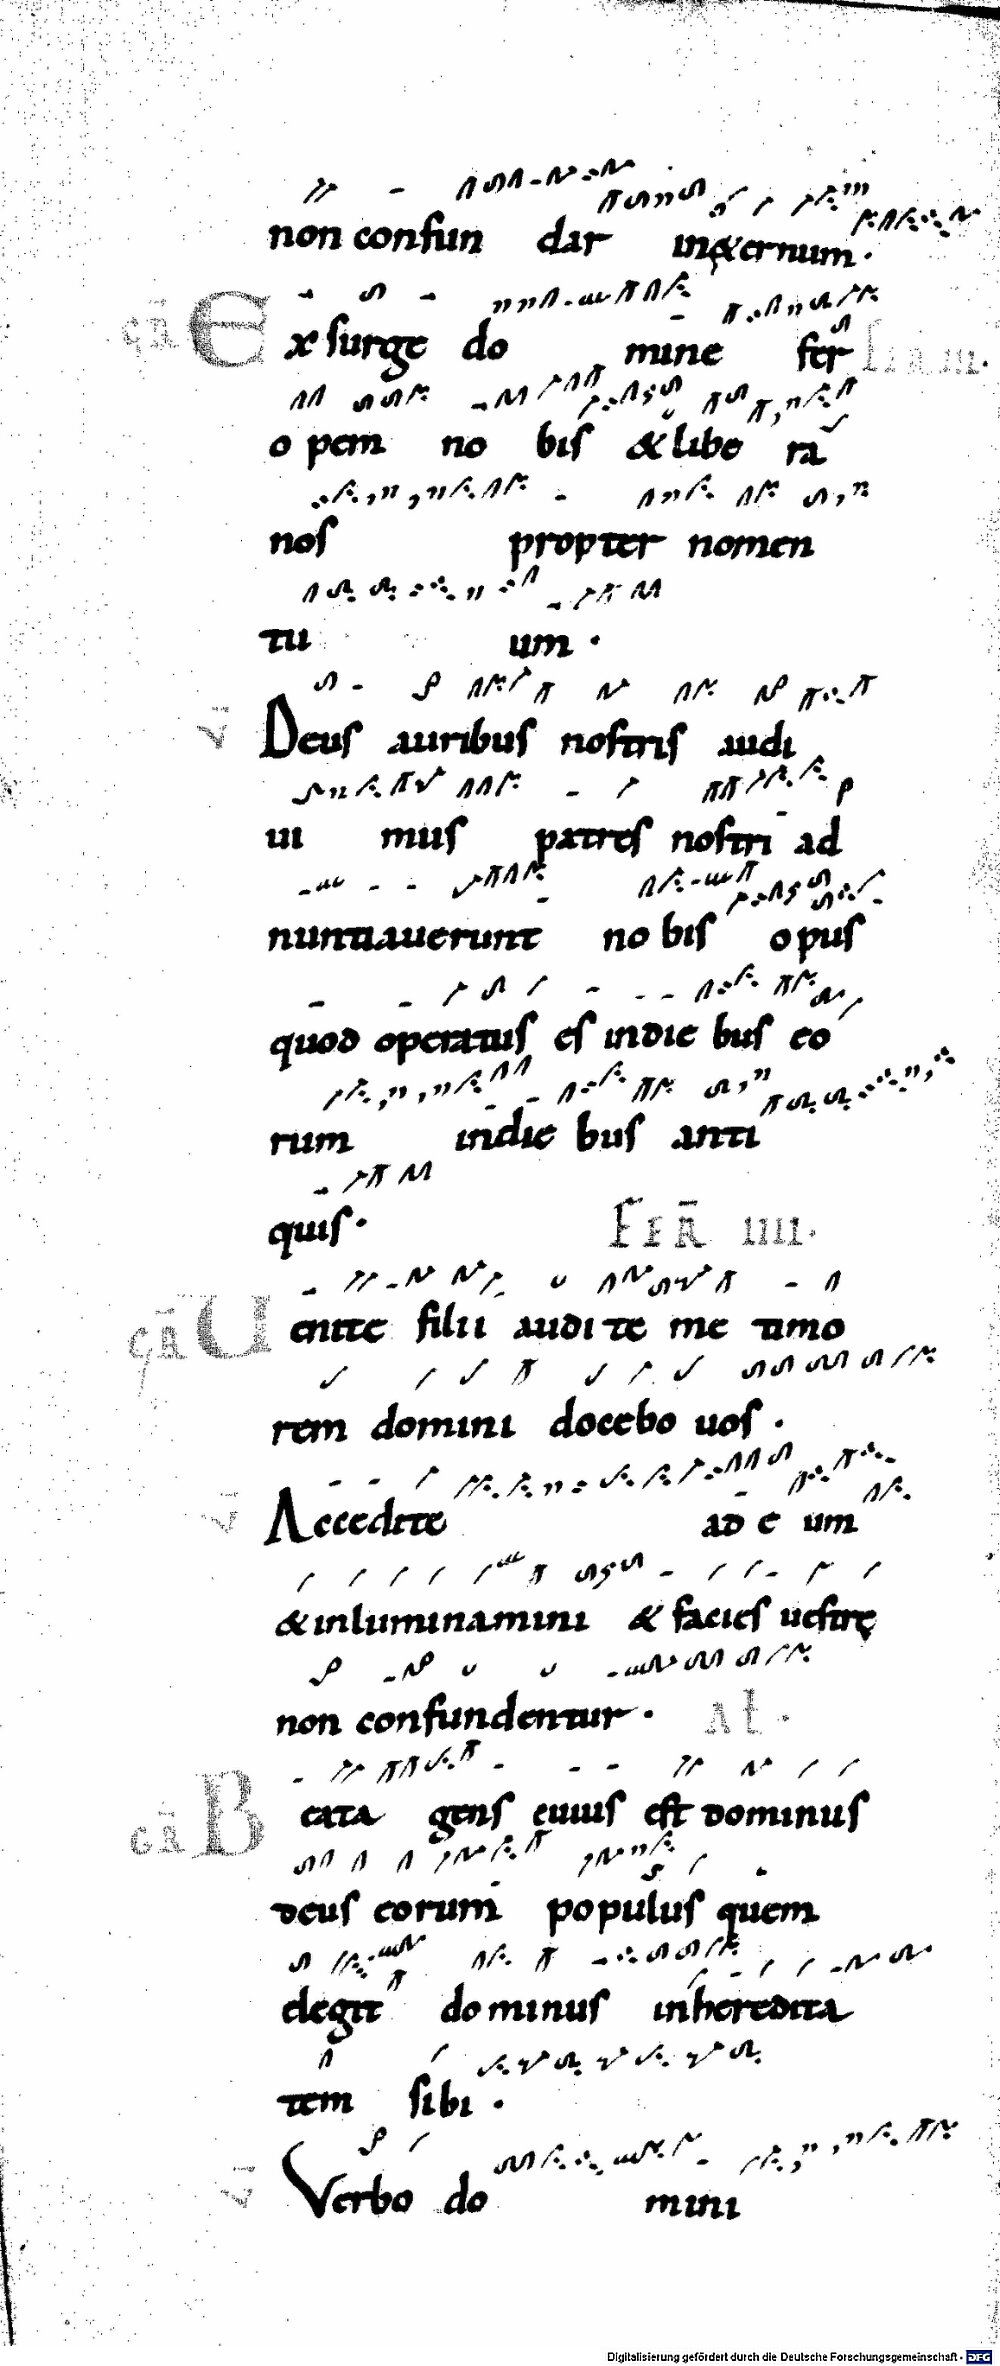 non confun dar in &ernum.
GR̄ Exsurge do mine fer FERIA III.
opem no bis & libe ra
nos propter nomen
tu um.
V Deus auribus nostris audi
ui mus patres nostri ad
nuntiauerunt no bis opus
quod operatus es indie bus eo
rum indie bus anti
quis. FER̄ IIII.
GR̄ Uenite filii audite me timo
rem domini docebo uos.
V Accedite ad e um
& inluminamini & facies uestrę
non confundentur. AL.
GR̄ Beata gens cuius est dominus
deus eorum populus quem
elegit dominus inheredita
tem sibi.
V Verbo do mini
Digitalisierung gefördert durch die Deutsche Forschungsgemeinschaft - DFG